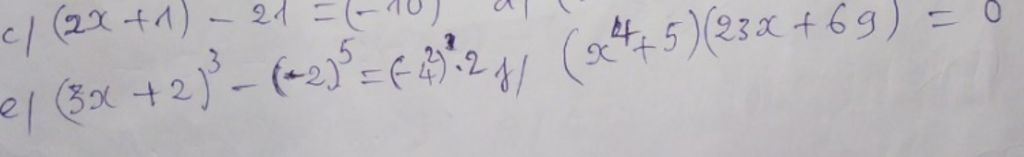 c/ (2x + 1) - 21 = (-10)
e/ (3x + 2)³ - (-2)⁵ = (-4²)².2 f/ (x⁴ + 5)(23x + 69) = 0